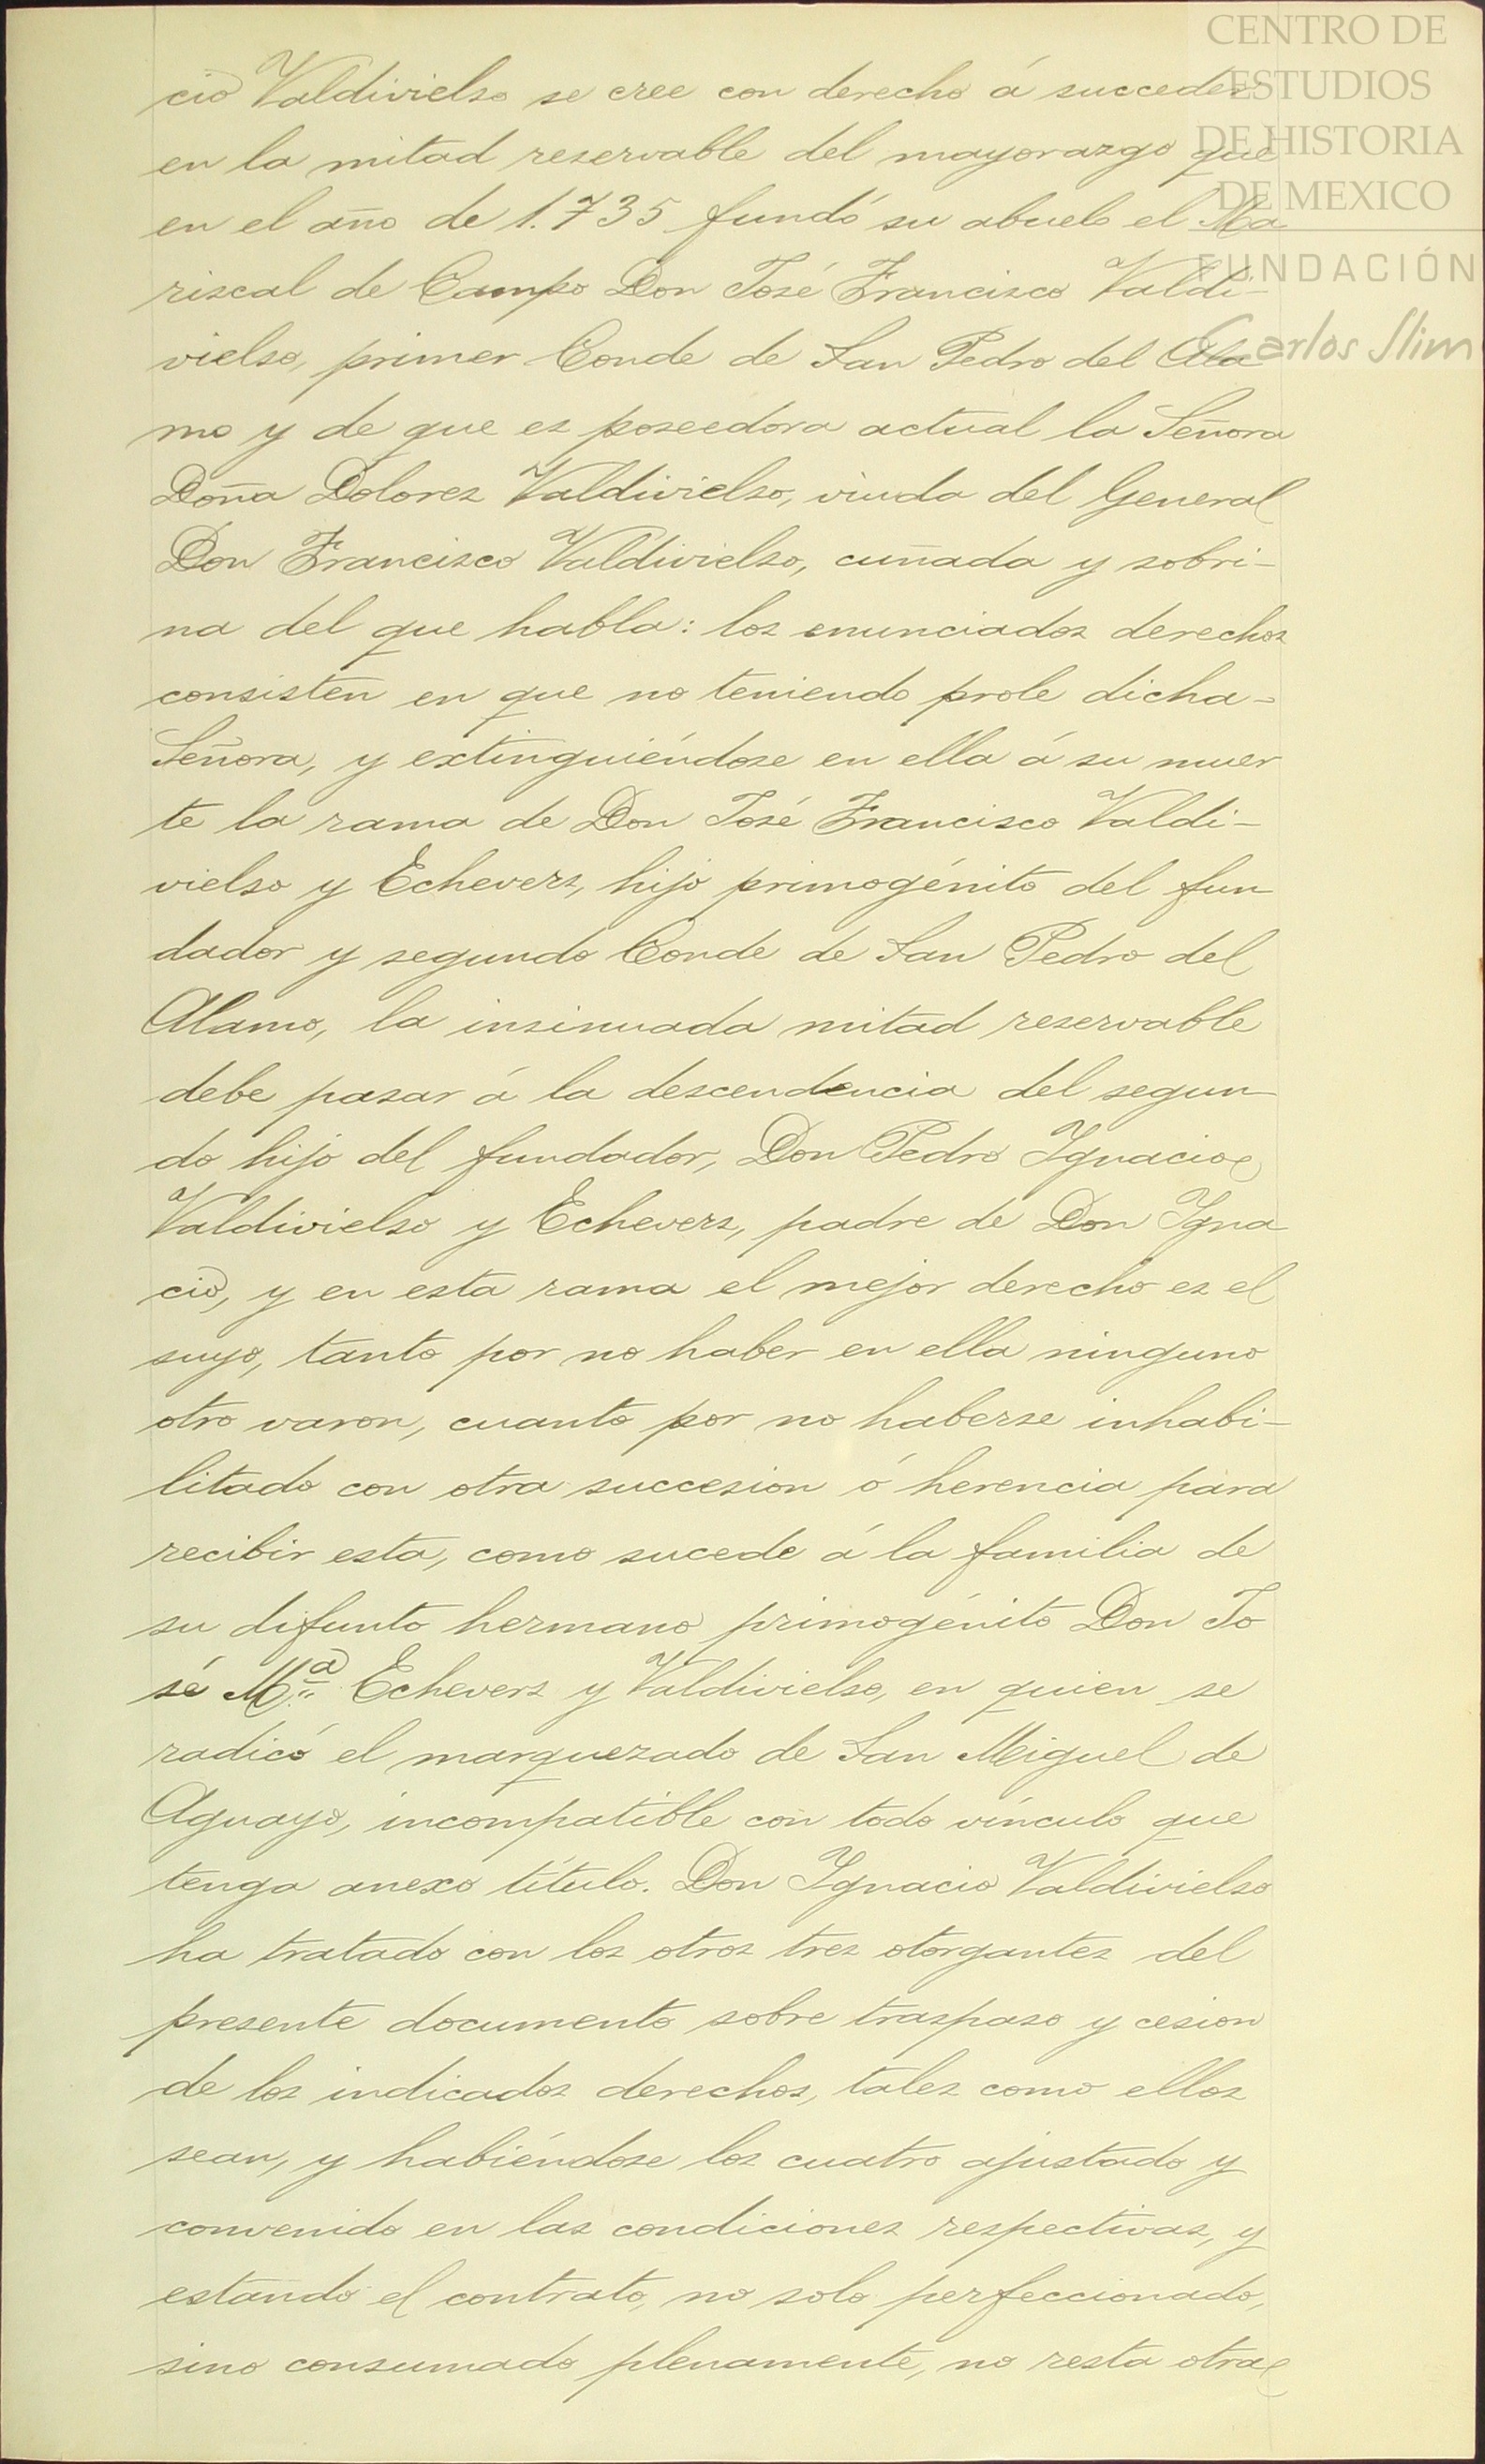 CENTRO DE
ESTUDIOS
DE HISTORIA
DE MEXICO
FUNDACIÓN
Carlos Slim
cio Valdivielso se cree con derecho á succeder
en la mitad reservable del mayorazgo que
en el año de 1.735 fundó su abuelo el Ma
riscal de Campo Don José Francisco Valdi-
vielso, primer Conde de San Pedro del Ala
mo y de que es poseedora actual la Señora
Doña Dolores Valdivielso, viuda del General
Don Francisco Valdivielso, cuñada y sobri-
na del que habla: los enunciados derechos
consisten en que no teniendo prole dicha-
Señora, y extinguiéndose en ella á su muer
te la rama de Don José Francisco Valdi-
vielso y Echevers, hijo primogénito del fun
dador y segundo Conde de San Pedro del
Alamo, la insinuada mitad reservable
debe pasar á la descendencia del segun
do hijo del fundador, Don Pedro Ignacio
Valdivielso y Echevers, padre de Don Igna
cio, y en esta rama el mejor derecho es el
suyo, tanto por no haber en ella ninguno
otro varon, cuanto por no haberse inhabi-
litado con otra succesion ó herencia para
recibir esta, como sucede á la familia de
su difunto hermano primogénito Don Jo
sé M.ª Echevers y Valdivielso, en quien se
radicó el marquezado de San Miguel de
Aguayo, incompatible con todo vínculo que
tenga anexo título. Don Ignacio Valdivielso
ha tratado con los otros tres otorgantes del
presente documento sobre traspaso y cesion
de los indicados derechos, tales como ellos
sean, y habiéndose los cuatro ajustado y
convenido en las condiciones respectivas, y
estando el contrato, no solo perfeccionado,
sino consumado plenamente, no resta otra